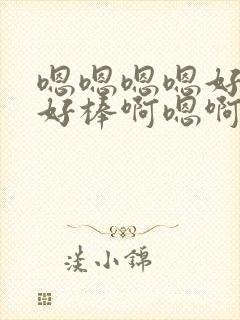 嗯嗯嗯嗯好
好棒啊嗯啊
淡小锦